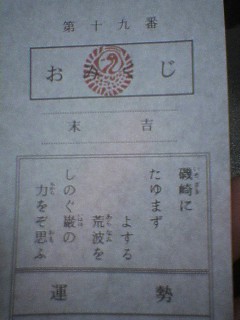 第十九番
おみくじ
末吉
磯崎に
たゆまず
よする
荒波を
しのぐ巌の
力をぞ思ふ
運勢